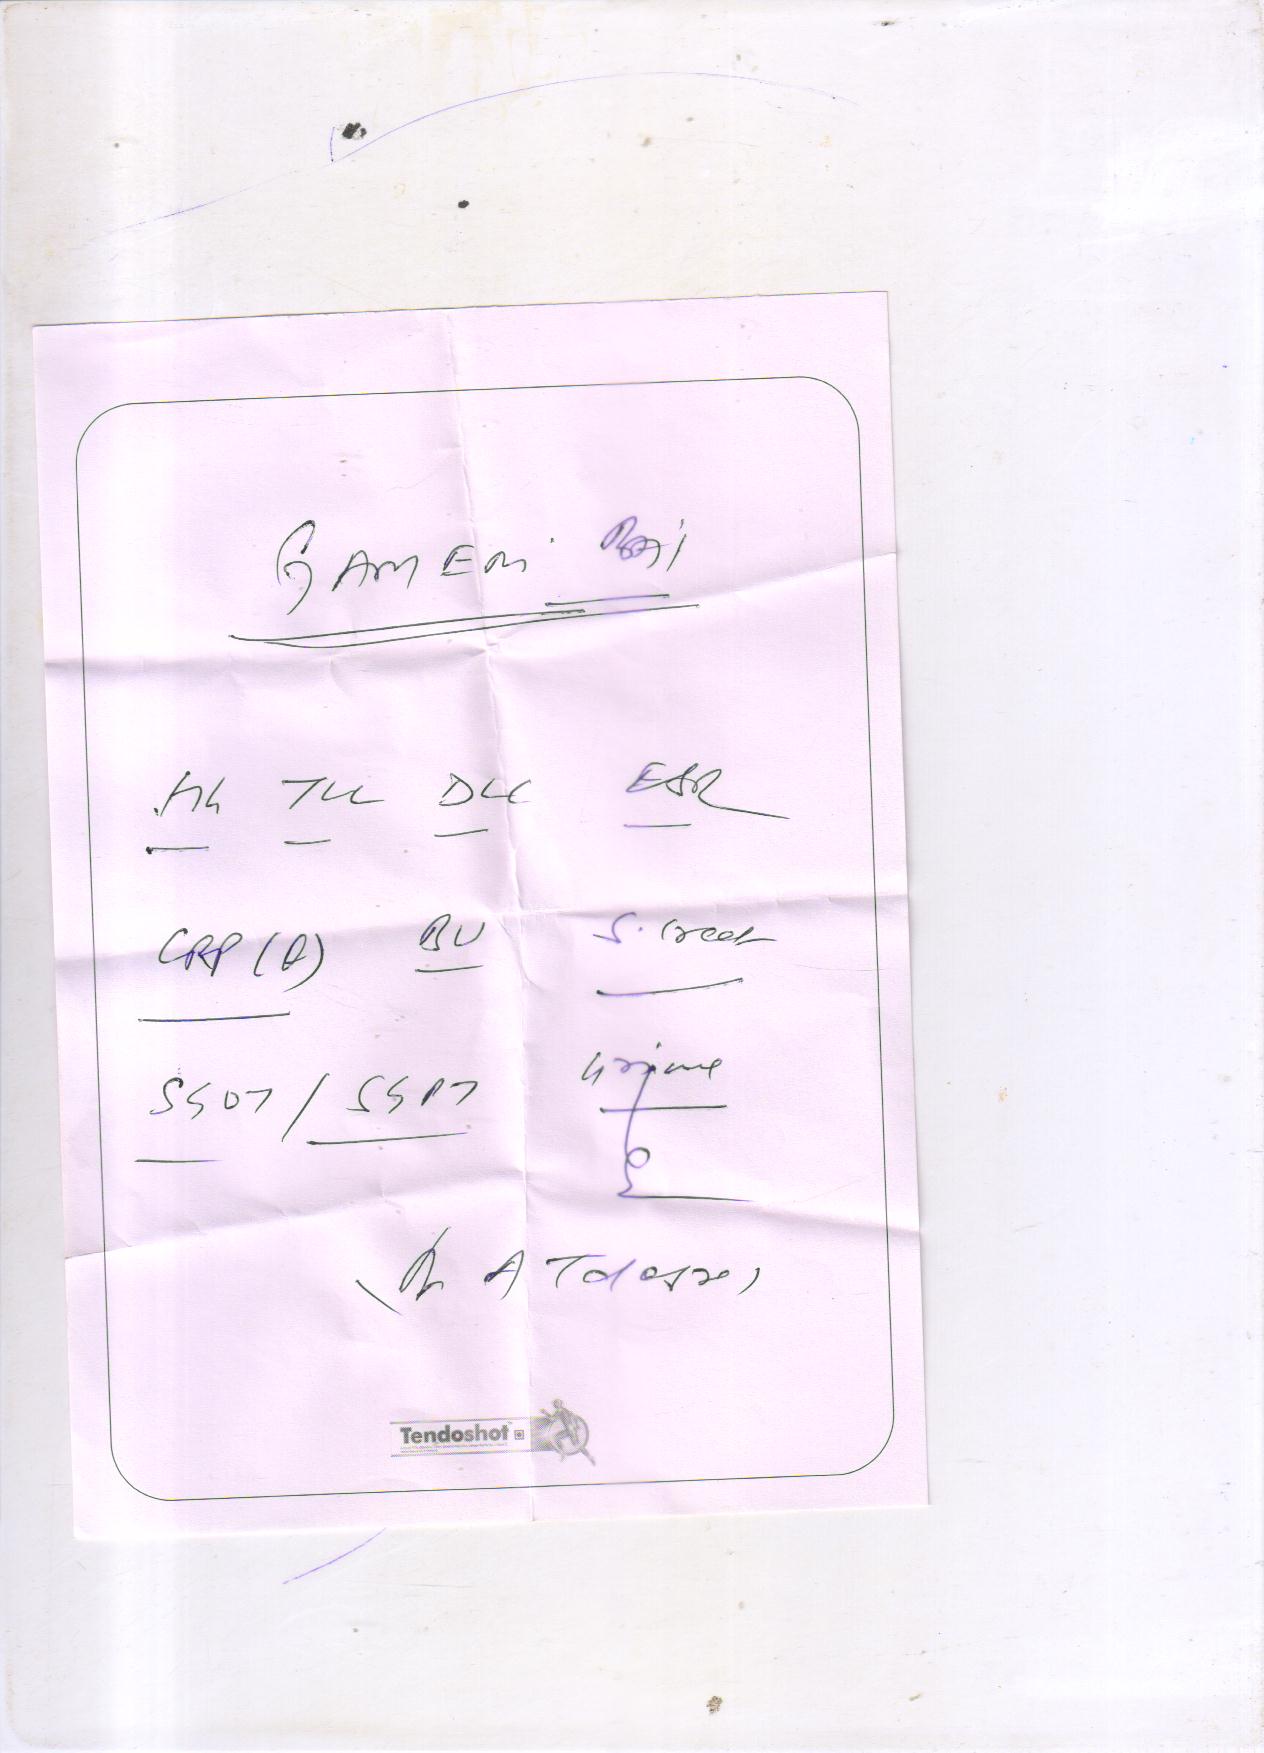 GAMERI BAI
Hb TLC DLC ESR
CRP (Q) BU S. Creat
SGOT / SGPT Urine
Tendoshot